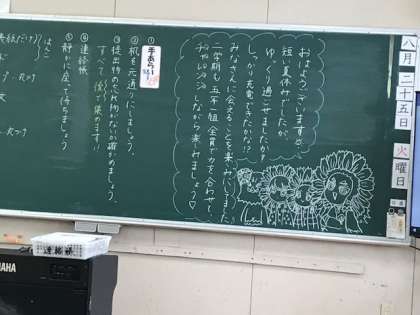 八月二十五日火曜日
おはようございます。
短い夏休みでしたが、
ゆっくり過ごせましたか?
しっかり充電できたかな!?
みなさんに会えることを楽しみにしていました。
二学期も五年一組全員で力を合わせて、
チャレンジしながら楽しみましょう♡
①手あらい
②机を元通りにしましょう。
③提出物の忘れ物がないか確かめましょう。
すべて後で集めます!!
④連絡帳
⑤静かに座って待ちましょう
連絡帳
YAMAHA